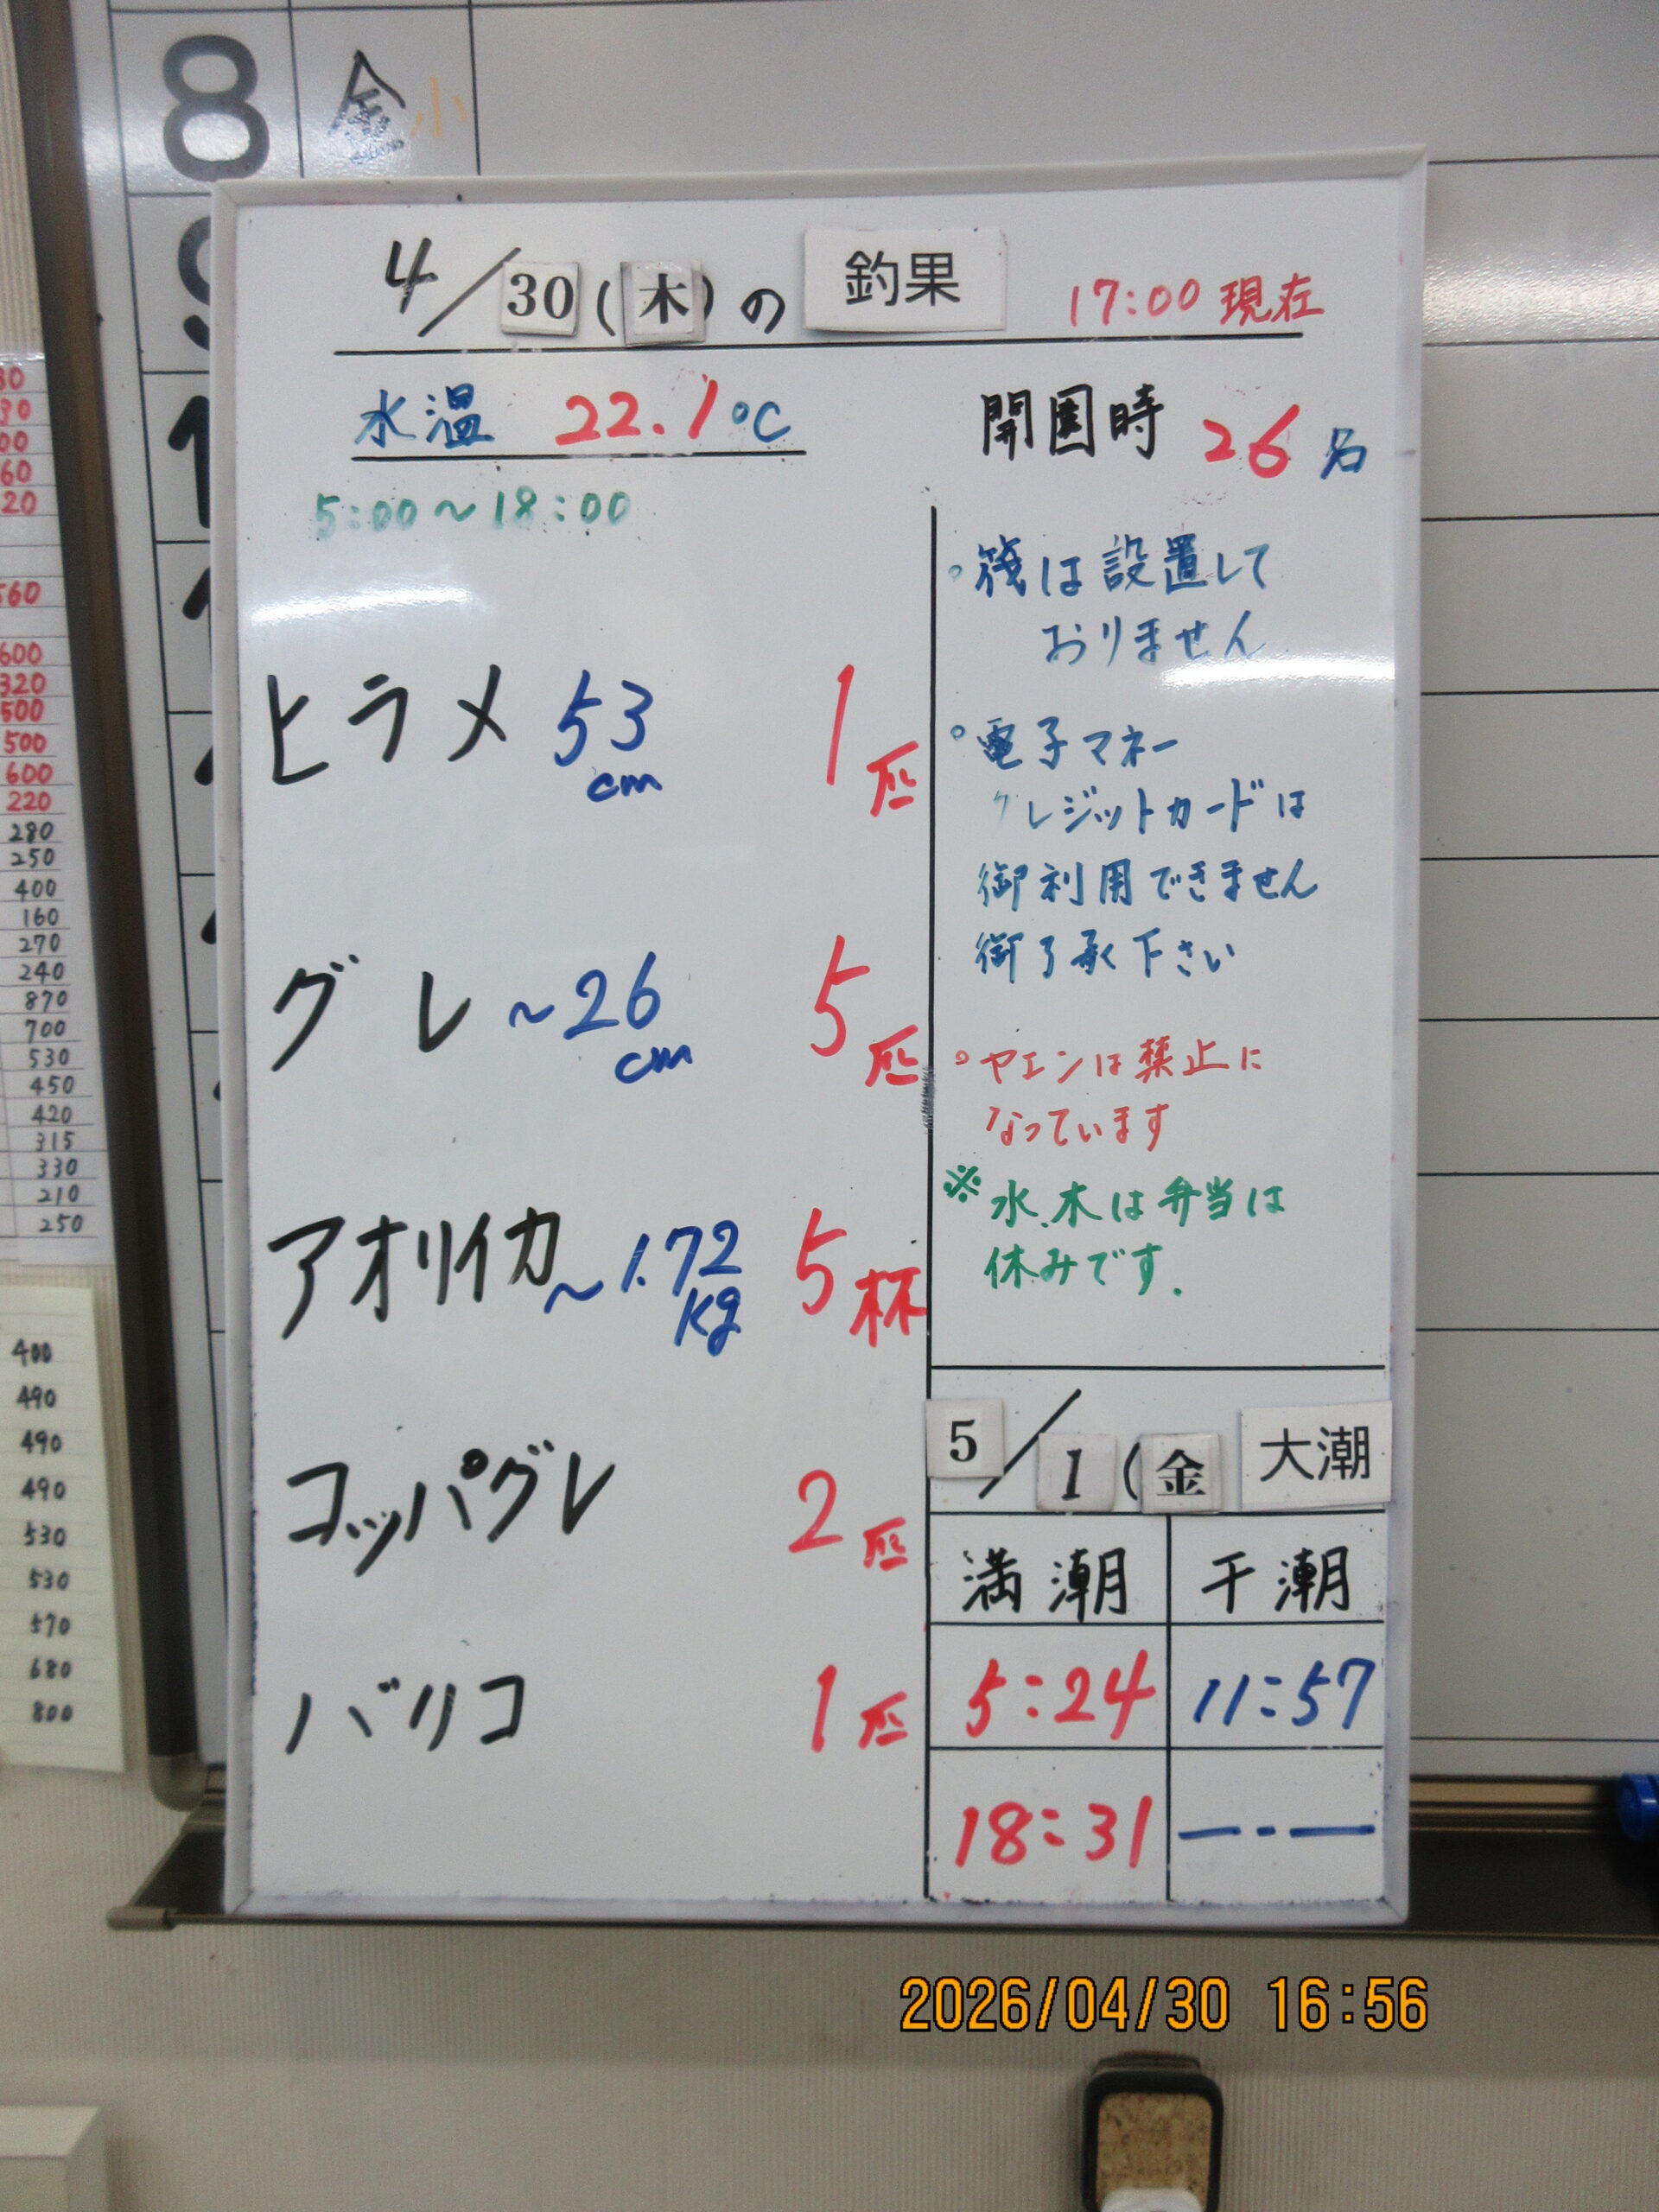 8 金 小
4/30(木)の 釣果 17:00 現在
水温 22.1℃
開園時 26名
5:00～18:00
ヒラメ 53cm 1匹
グレ ～26cm 5匹
アオリイカ ～1.72kg 5杯
コッパグレ 2匹
バリコ 1匹
◦筏は設置して
おりません
◦電子マネー
クレジットカードは
御利用できません
御了承下さい
◦ヤエンは禁止に
なっています
※水、木は弁当は
休みです.
5/1(金 大潮
満潮 干潮
5:24 11:57
18:31 —-—
560
600
320
500
500
600
220
280
250
400
160
270
240
870
700
530
450
420
315
330
210
250
400
490
490
490
530
530
570
680
800
2026/04/30 16:56